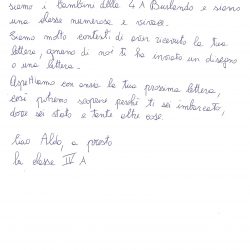 siamo i bambini della 4 A Burlando e siamo
una classe numerosa e vivace.
Siamo molto contenti di aver ricevuto la tua
lettera, ognuno di noi ti ha inviato un disegno
o una lettera.
Aspettiamo con ansia la tua prossima lettera,
così potremo scoprire perché ti sei imbarcato,
dove sei stato e tante altre cose.
Ciao Aldo, a presto
la classe IV A